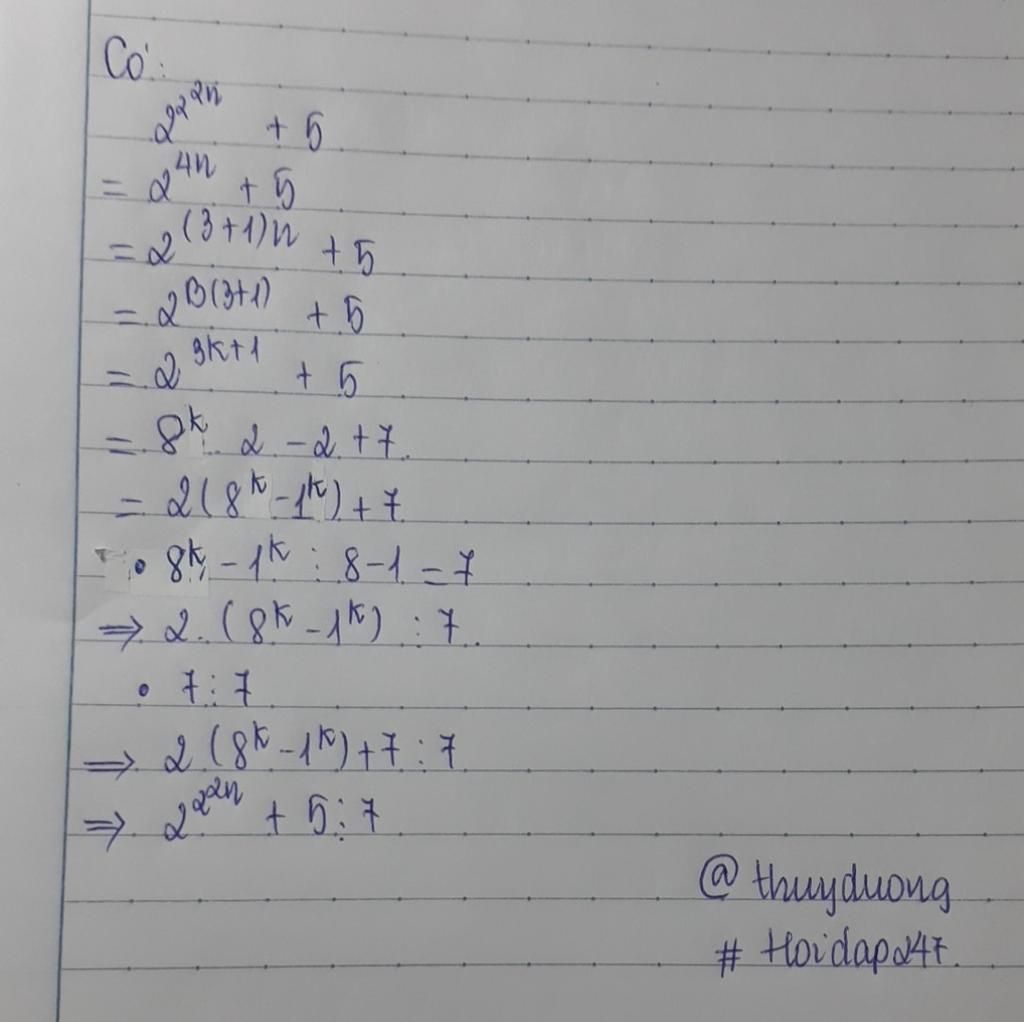 Có:
2^2^2n + 5
= 2^4n + 5
= 2^(3+1)n + 5
= 2^B(3+1) + 5
= 2^3k+1 + 5
= 8^k . 2 - 2 + 7
= 2(8^k - 1^k) + 7
• 8^k - 1^k ⋮ 8 - 1 = 7
⇒ 2. (8^k - 1^k) ⋮ 7
• 7 ⋮ 7
⇒ 2 (8^k - 1^k) + 7 ⋮ 7
⇒ 2^2^2n + 5 ⋮ 7
@ thuyduong
# Hoidap247